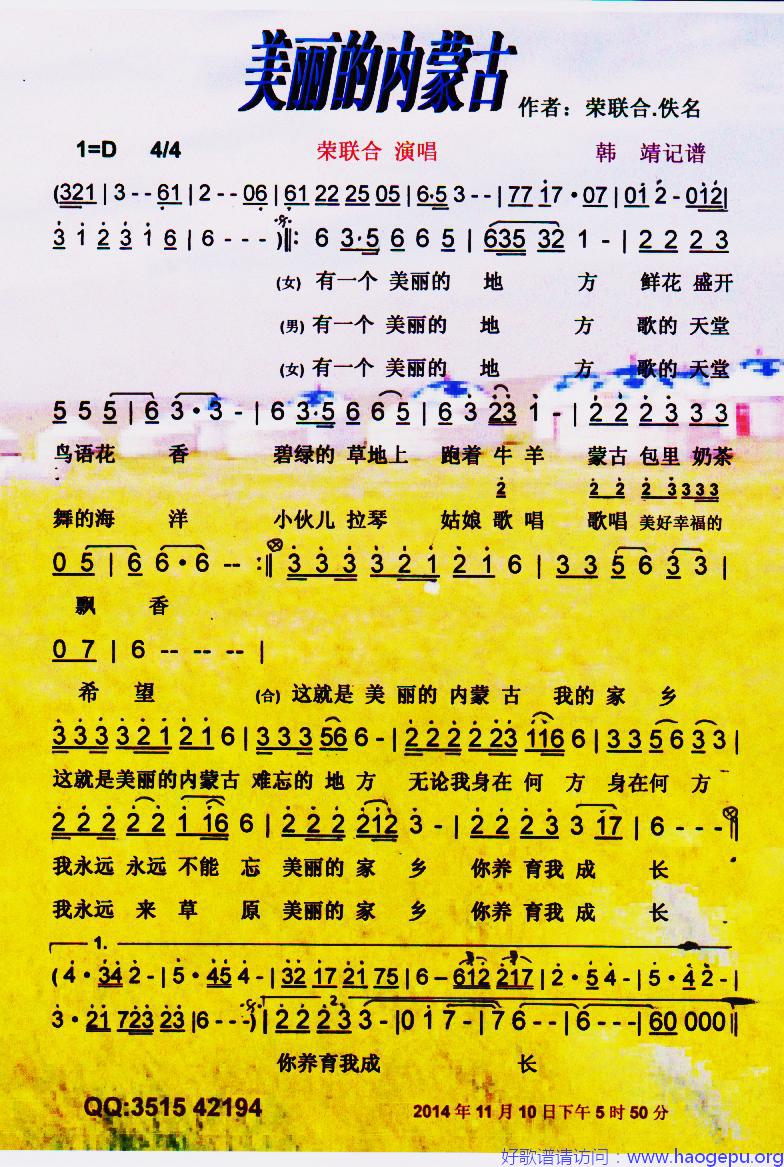 美丽的内蒙古
作者：荣联合.佚名
1=D 4/4 荣联合 演唱 韩 靖记谱
(321 | 3 - - 61 | 2 - - 06 | 61 22 25 05 | 6·5 3 - - | 77 17·07 | 012 - 012|
3 1 2 3 1 6 | 6 - - - )‖: 6 3·5 6 6 5 | 635 32 1 - | 2 2 2 3
(女) 有一个 美丽的 地 方 鲜花 盛开
(男) 有一个 美丽的 地 方 歌的 天堂
(女) 有一个 美丽的 地 方 歌的 天堂
5 5 5 | 6 3·3 - | 6 3·5 6 6 5 | 6 3 23 1 - | 2 2 2 3 3 3
鸟语花 香 碧绿的 草地上 跑着 牛 羊 蒙古 包里 奶茶
2 2 2 2 3 3 3 3
舞的海 洋 小伙儿 拉琴 姑娘 歌 唱 歌唱 美好幸福的
0 5 | 6 6·6 - - :‖ 3 3 3 3 2 1 2 1 6 | 3 3 5 6 3 3 |
飘 香
0 7 | 6 -- -- -- |
希 望 (合) 这就是 美 丽的 内蒙 古 我的 家 乡
3 3 3 3 2 1 2 1 6 | 3 3 3 56 6 - | 2 2 2 2 23 116 6 | 3 3 5 6 3 3 |
这就是美丽的内蒙古 难忘的 地 方 无论我身在 何 方 身在何 方
2 2 2 2 2 1 16 6 | 2 2 2 212 3 - | 2 2 2 3 3 17 | 6 - - - ‖
我永远 永远 不能 忘 美丽的 家 乡 你养 育我 成 长
我永远 来 草 原 美丽的 家 乡 你养 育我 成 长
1.
(4·34 2 - | 5·45 4 - | 32 17 21 75 | 6 - 612 217 | 2·5 4 - | 5·4 2 - |
3·21 723 23 |6 - - - )| 2 2 2 3 3 - |0 1 7 - | 7 6 - - | 6 - - - | 60 000 ‖
2.
你养育我成 长
QQ:3515 42194
2014 年 11 月 10 日下午 5 时 50 分
好歌谱请访问：www.haogepu.org